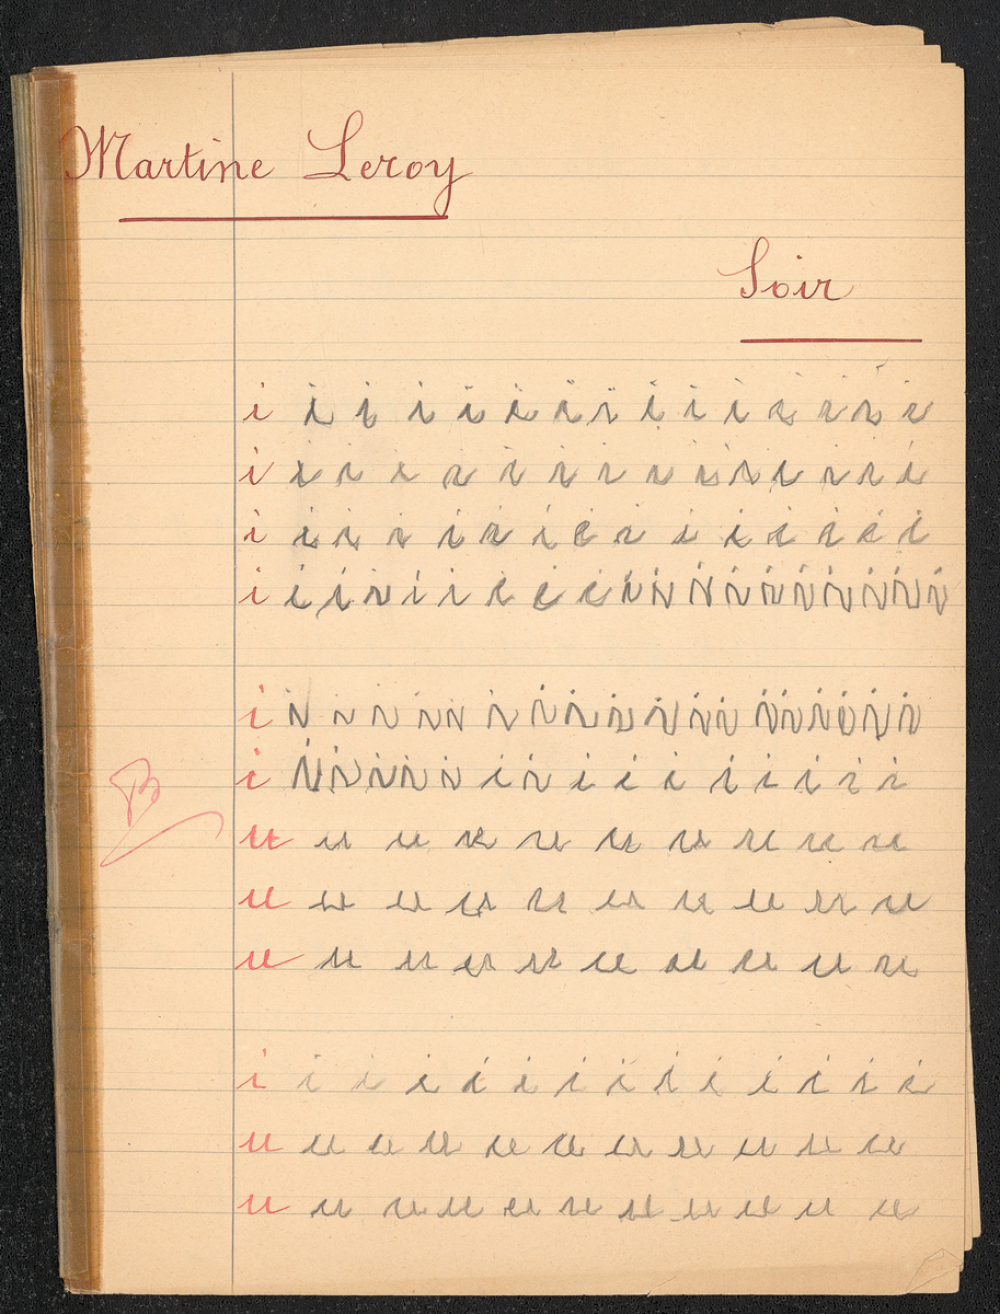 Martine Leroy
Soir
i i i i i i i i i i i i i i i
i i i i i i i i i i i i i i i
i i i i i i i i i i i i i i
i i i i i i i i i i i i i i i i i i
i i i i i i i i i i i i i i i i i i
i i i i i i i i i i i i i i i
B
u u u u u u u u u u
u u u u u u u u u u
u u u u u u u u u u
i i i i i i i i i i i i i i
u u u u u u u u u u u
u u u u u u u u u u u